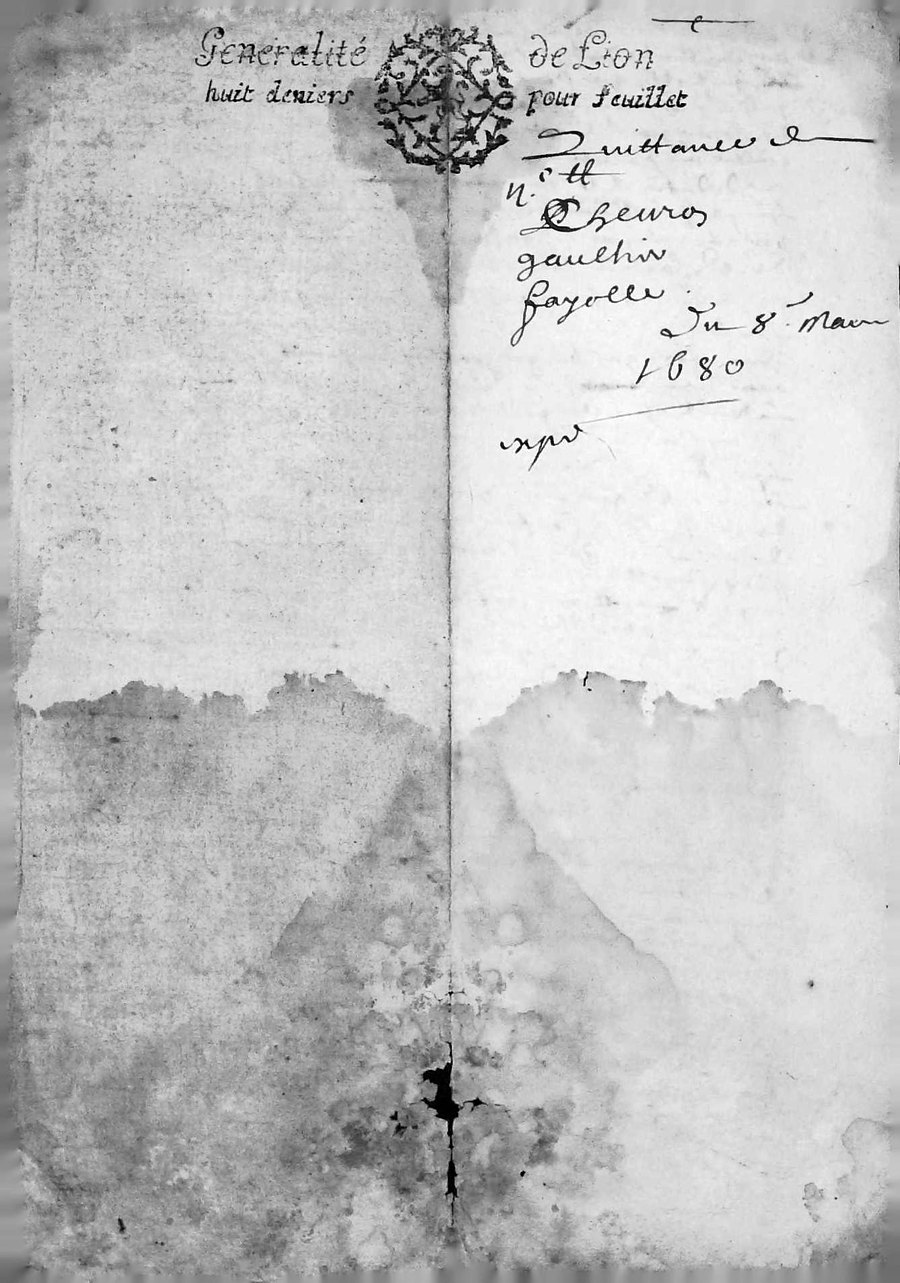 Generalité de Lion
huit deniers pour feuillet
Quittance de
n.e tt
Cheuros
gaulthier
fayolle
Du 8e Mars
1680
expe